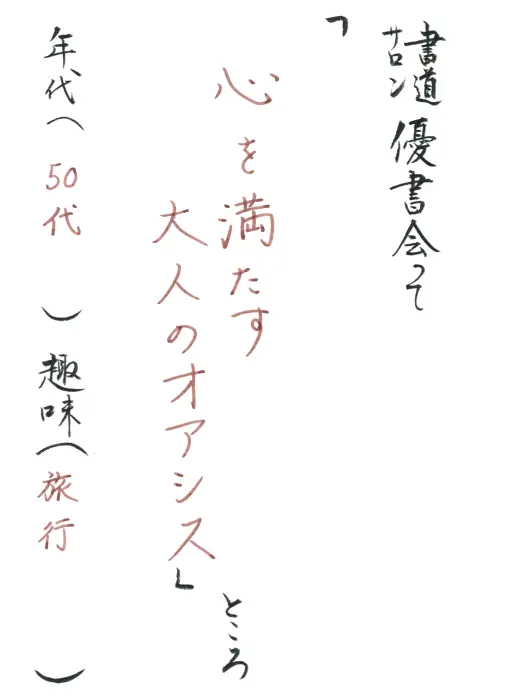 書道サロン 優書会って
「心を満たす
大人のオアシス」
ところ
年代（50代）趣味（旅行）